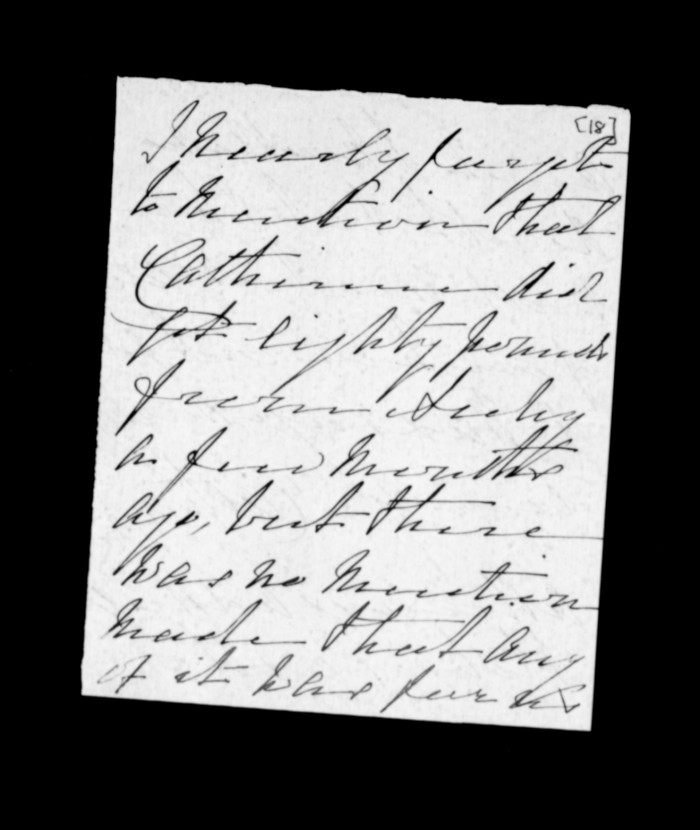 [18]
I nearly forgot
to mention that
Catherine did
get eighty pounds
from
a few months
ago, but there
was no mention
made that any
of it was for us